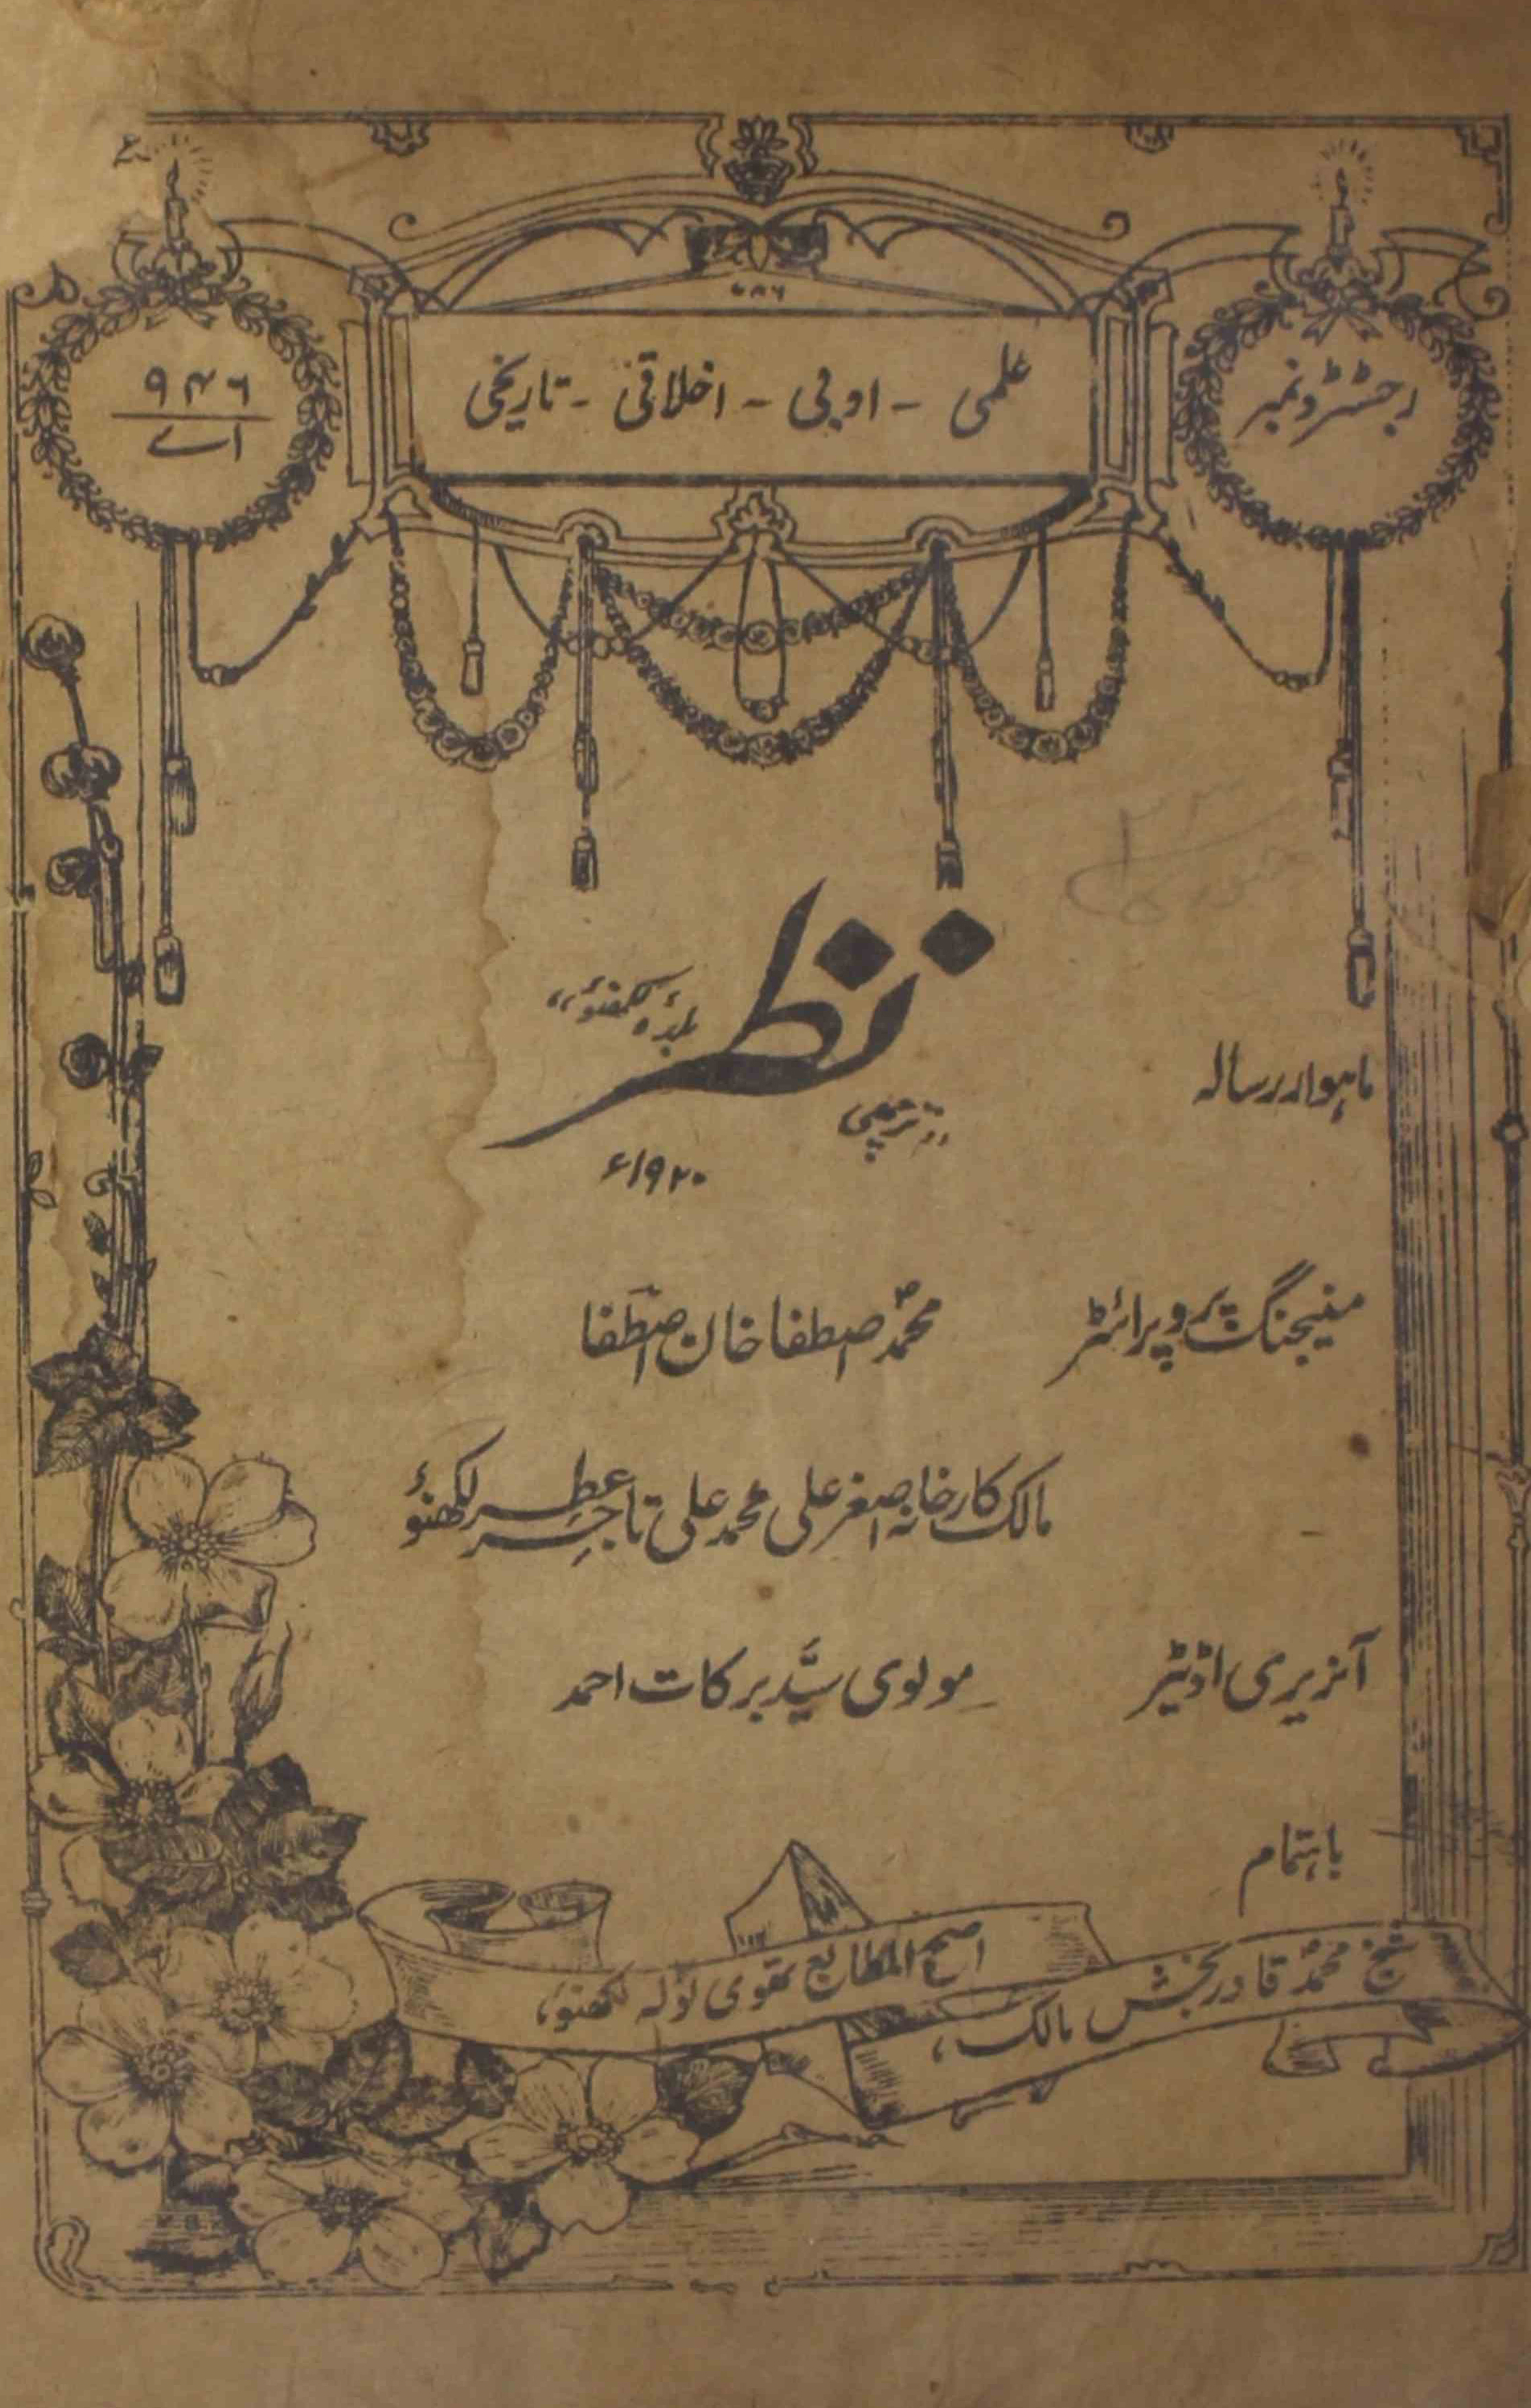 ۷۸۶
رجسٹرڈ نمبر
علمی - ادبی - اخلاقی - تاریخی
۹۴۶
اے
ماہوار رسالہ
"ترچھی نظر بلدۂ لکھنؤ"
۱۹۲۰ء
منیجنگ پروپرائٹر محمد اصطفا خان اصطفا
مالک کارخانہ اصغر علی محمد علی تاجر عطر لکھنؤ
آنریری اڈیٹر مولوی سیّد برکات احمد
باہتمام
شیخ محمد قادر بخش مالک،
اصح المطابع نقوی ٹولہ لکھنؤ،